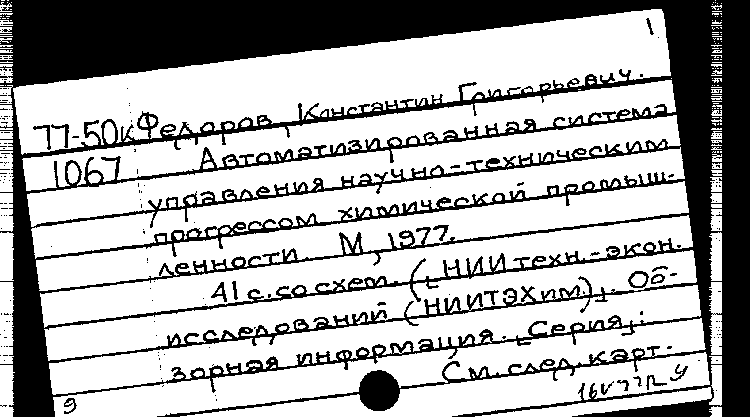 1
77-50к Федоров, Константин Григорьевич.
1067 Автоматизированная система
управления научно-техническим
прогрессом химической промыш-
ленности. М, 1977.
41 с. со схем. („НИИ техн.-экон.
исследований (НИИТЭХим)„. Об-
зорная информация. „Серия„:
См. след. карт.
9